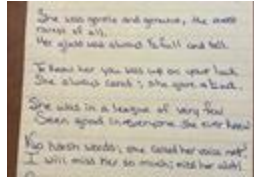 She was gentle and genuine, the most
rarest of all.
Her glass was always ½ full and tall.
To know her you was up on your luck
She always cared; she gave a
She was in a league of very few
Seen good in everyone she ever knew
No harsh words; she raised her voice not?
I will miss her so much; miss her alot!